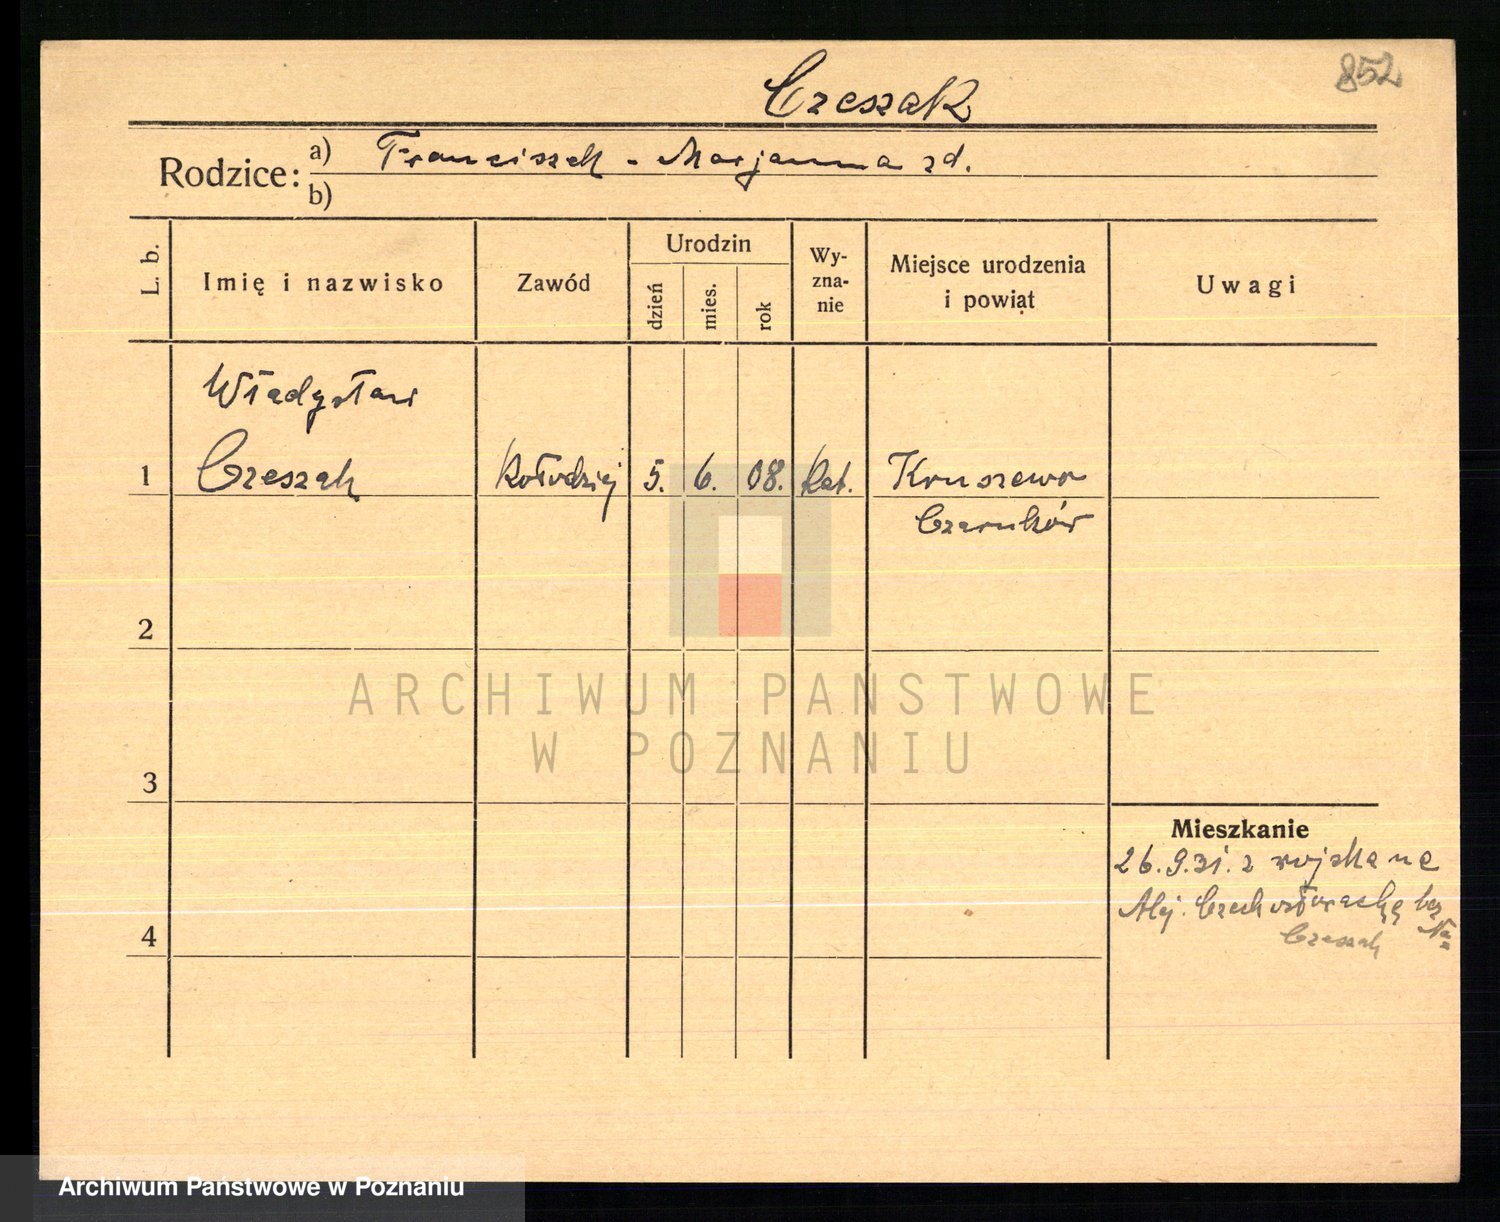 852
Czeszak
Rodzice: a) Franciszek - Marjanna zd.
b)
L. b.
Imię i nazwisko
Zawód
Urodzin
dzień
mies.
rok
Wy-
zna-
nie
Miejsce urodzenia
i powiąt
Uwagi
Władysław
1 Czeszak Kołodziej 5. 6. 08. kat. Kruszewo
Czarnków
2
ARCHIWUM PAŃSTWOWE
W POZNANIU
3
Mieszkanie
26.9.31. z wojska na
Alej. bez
Czeszak
4
Archiwum Państwowe w Poznaniu